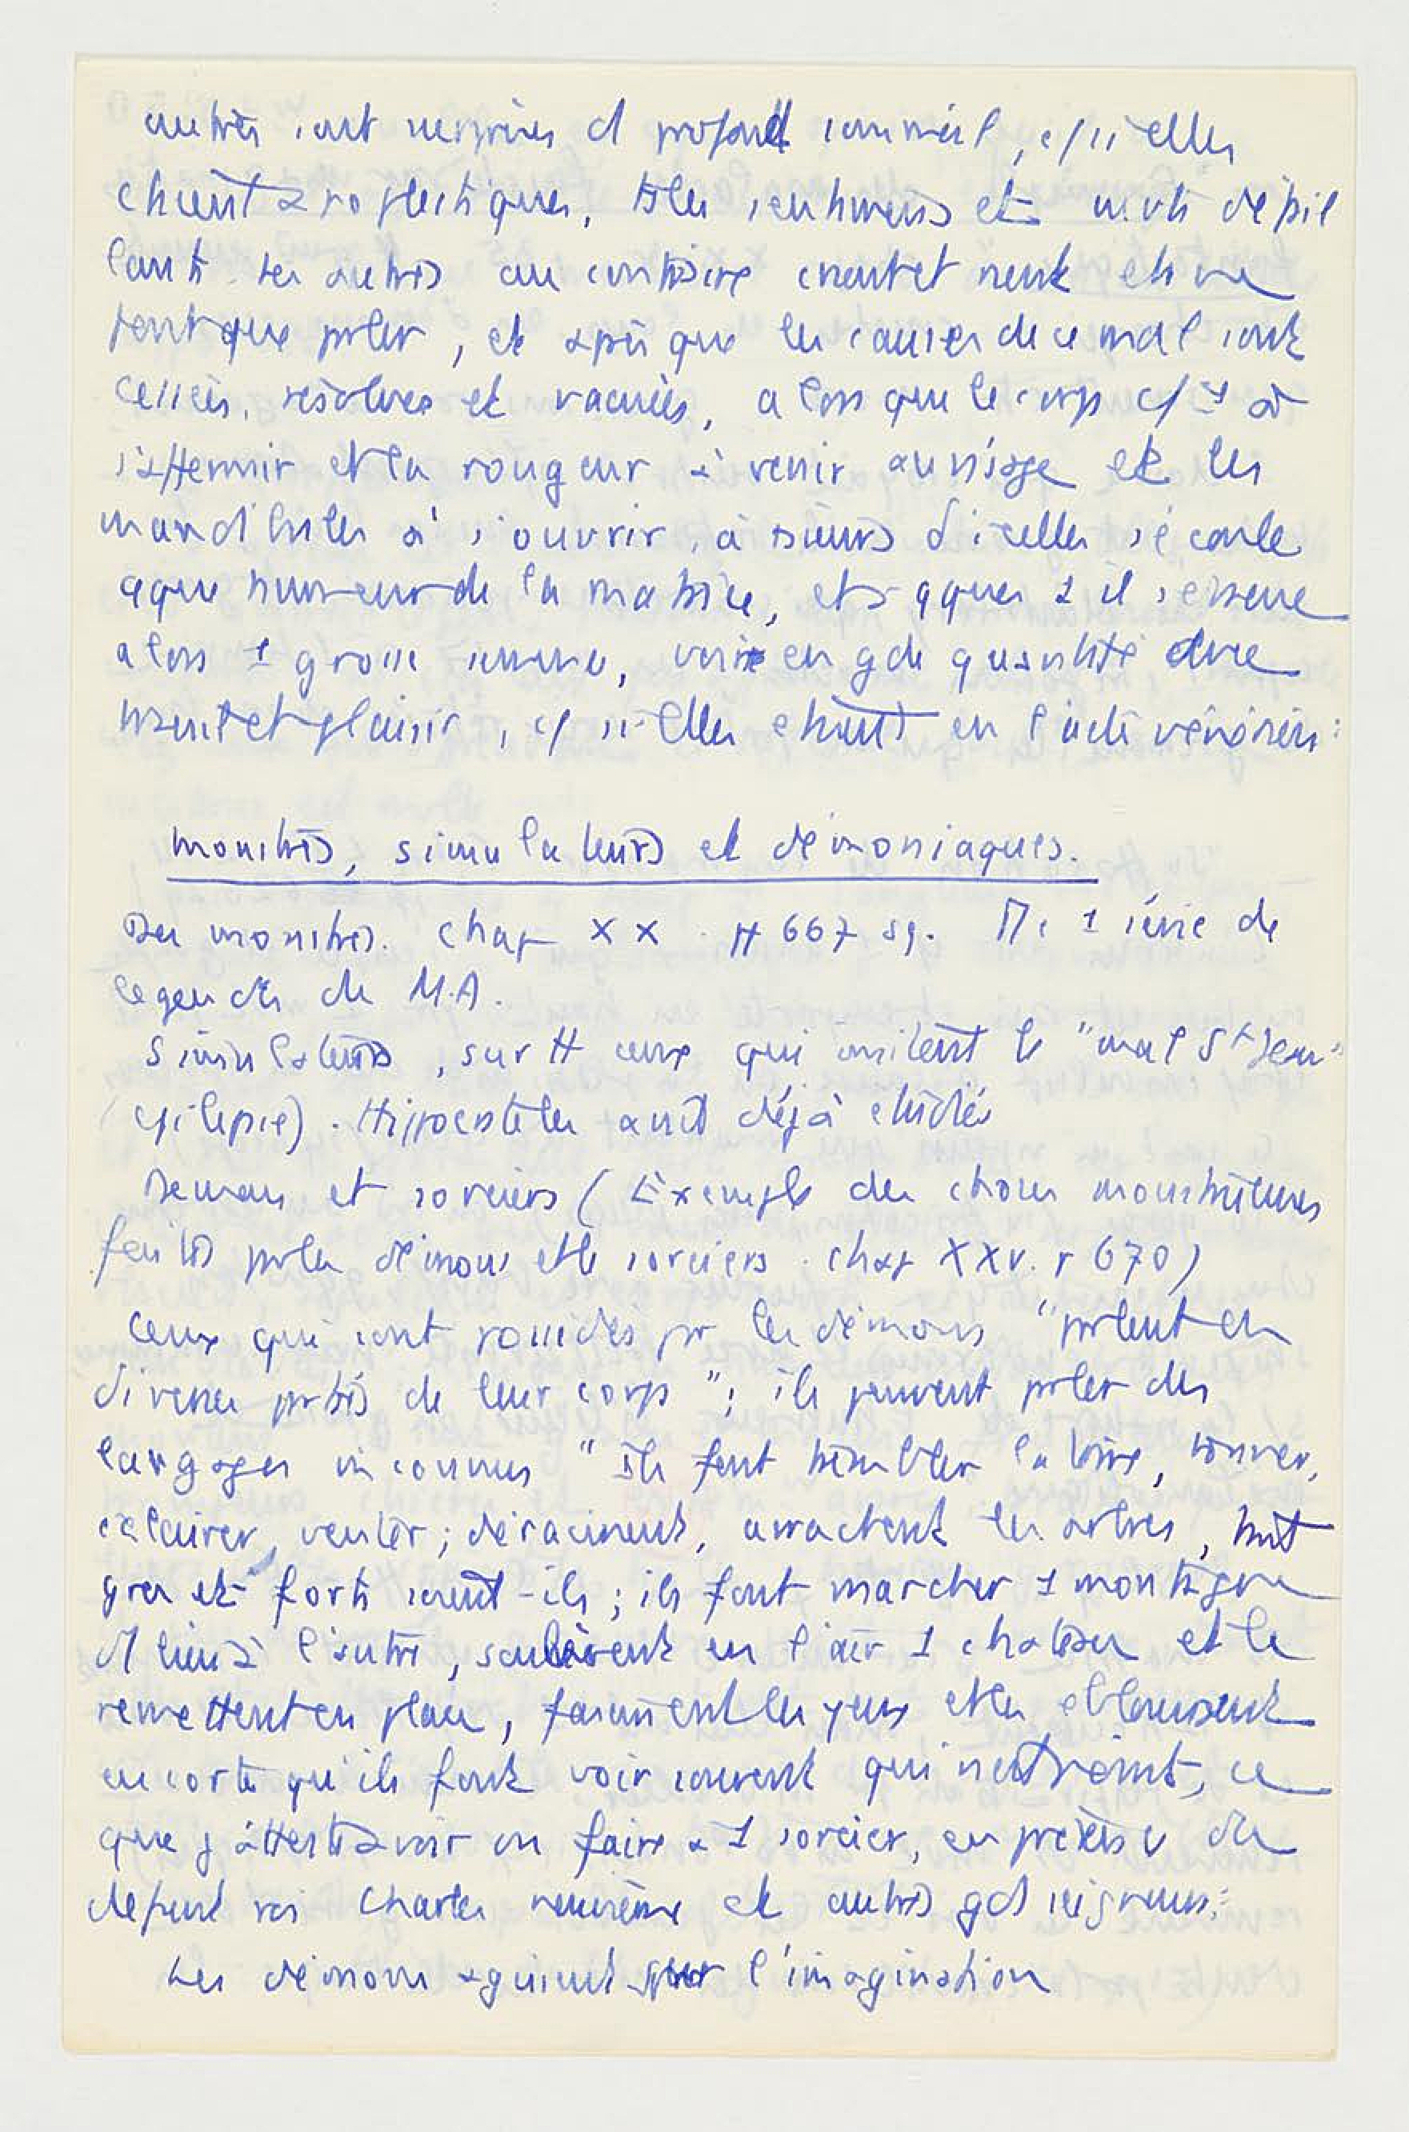 autres sont resveries et profond sommeil, c/ si elles
étaient apoplectiques, tts les sentiments et mvts défail
lants. Les autres au contraire crient et
font que parler, et après que les causes de ce mal sont
cessées, résolues et vacuées, alors que le corps c/ce à
s'affermir et la rougeur à venir au visage et les
mandibules à s'ouvrir, à plusieurs d'icelles s'écoule
qque humeur de la matrice, et à qques 1 il s'
alors 1 grosse semence, voire en gde quantité avec
et plaisir, c/ si elles étaient en l'acte vénérien :
monstres, simulateurs et démoniaques.
Des monstres. Chap XX . 667 sq. 1 série de
légendes du M.A.
Simulateurs, surtt ceux qui imitent le "mal St Jean"
épilepsie). Hippocrate les avait déjà étudiés
Démons et sorciers (Exemple des choses monstrueuses
faites par les démons et les sorciers. chap XXV. p 670)
Ceux qui sont possédés par les démons "parlent en
diverses parties de leur corps" ; ils peuvent parler des
langages inconnus "Ils font trembler la terre, tonner,
éclairer, venter ; déracinent, arrachent les arbres, tant
gros et forts soient-ils ; ils font marcher 1 montagne
d'1 lieu à l'autre, soulèvent en l'air 1 château et le
remettent en place, fascinent les yeux et les éblouissent
en sorte qu'ils font voir souvent ce qui n'est point, ce
que j'atteste avoir vu faire à 1 sorcier, en présence du
défunt roi Charles neuvième et autres gds seigneurs."
Les démons agissent sur l'imagination